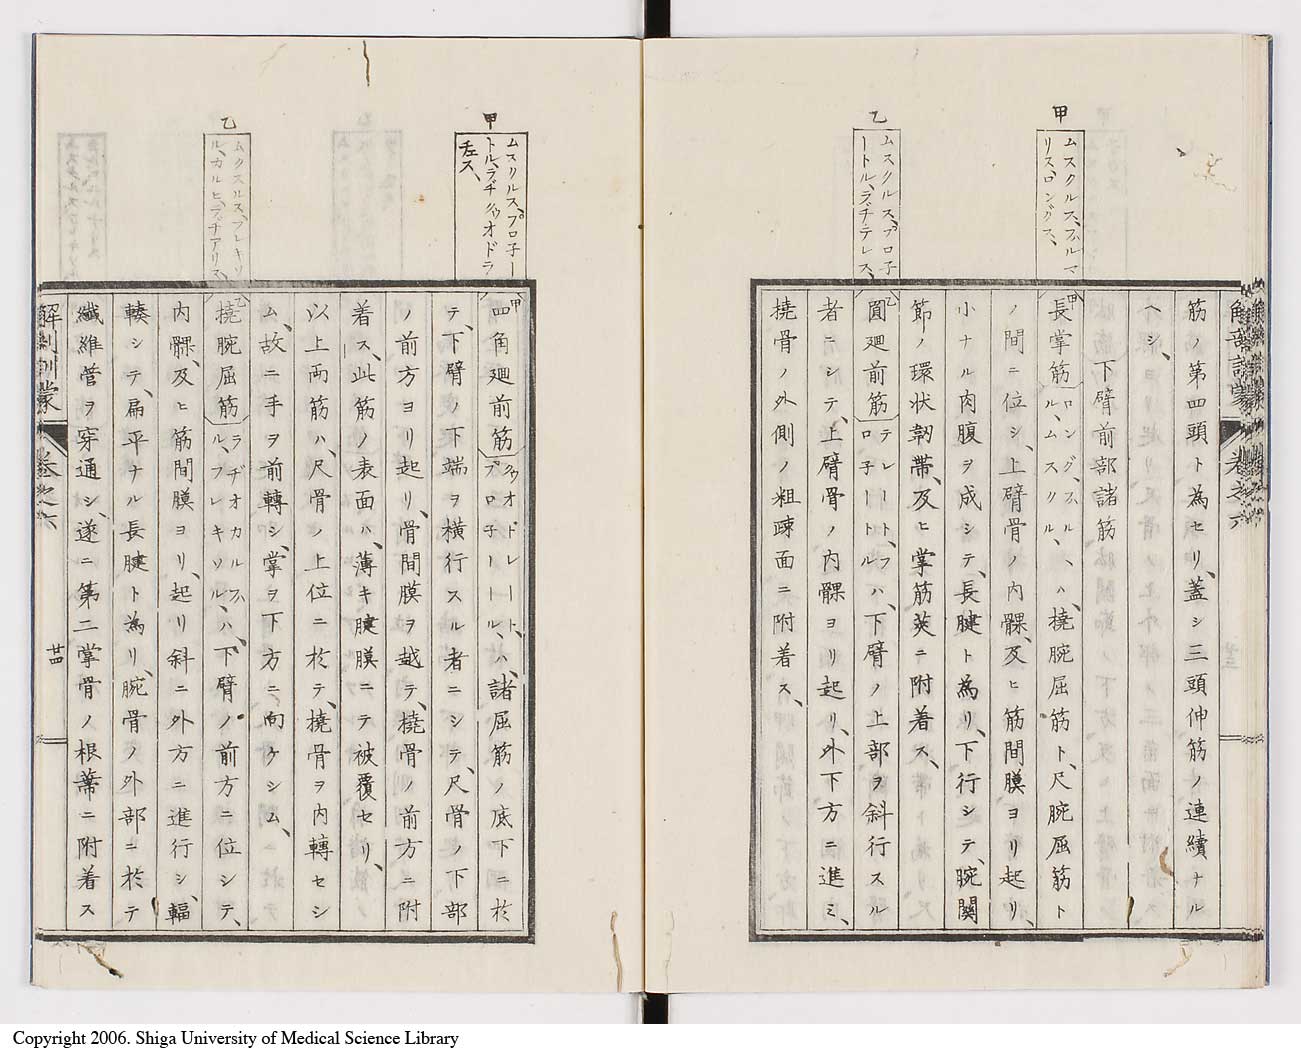 甲
ムスクルス、プルマ
リス、ロンギュス、
乙
ムスクルス、プロ子
ートル、ラヂ、テレス、
筋ノ第四頭ト為セリ、蓋シ三頭伸筋ノ連續ナル
ヘシ、
下臂前部諸筋
甲長掌筋 ロングス、ハルマル、ムスクル、ハ、橈腕屈筋ト、尺腕屈筋ト
ノ間ニ位シ、上臂骨ノ内髁、及ヒ筋間膜ヨリ起リ、
小ナル肉腹ヲ成シテ、長腱ト為リ、下行シテ、腕関
節ノ環状靭帯、及ヒ掌筋莢ニ附着ス、
乙圓廻前筋 テレートプロ子ートル ハ、下臂ノ上部ヲ斜行スル
者ニシテ、上臂骨ノ内髁ヨリ起リ、外下方ニ進ミ、
橈骨ノ外側ノ粗疎面ニ附着ス、
甲
ムスクルス、プロ子ー
トル、ラヂ
オドラ
チュス、
乙
ムクスルス、フレキソ
ル、カルヒ、ラヂアリス、
甲四角廻前筋 オドレート、プロ子ートル、ハ、諸屈筋ノ底下ニ於
テ、下臂ノ下端ヲ横行スル者ニシテ、尺骨ノ下部
ノ前方ヨリ起リ、骨間膜ヲ越テ、橈骨ノ前方ニ附
着ス、此筋ノ表面ハ、薄キ腱膜ニテ被覆セリ、
以上両筋ハ、尺骨ノ上位ニ於テ、橈骨ヲ内轉セシ
ム、故ニ手ヲ前轉シ、掌ヲ下方ニ向ケシム、
乙橈腕屈筋 ラヂオカルパル、フレキソル、ハ、下臂ノ前方ニ位シテ、
内髁、及ヒ筋間膜ヨリ、起リ斜ニ外方ニ進行シ、輻
輳シテ、扁平ナル長腱ト為リ、腕骨ノ外部ニ於テ
纖維管ヲ穿通シ、遂ニ第二掌骨ノ根蒂ニ附着ス
解剖訓蒙 卷之六 廿四
Copyright 2006. Shiga University of Medical Science Library